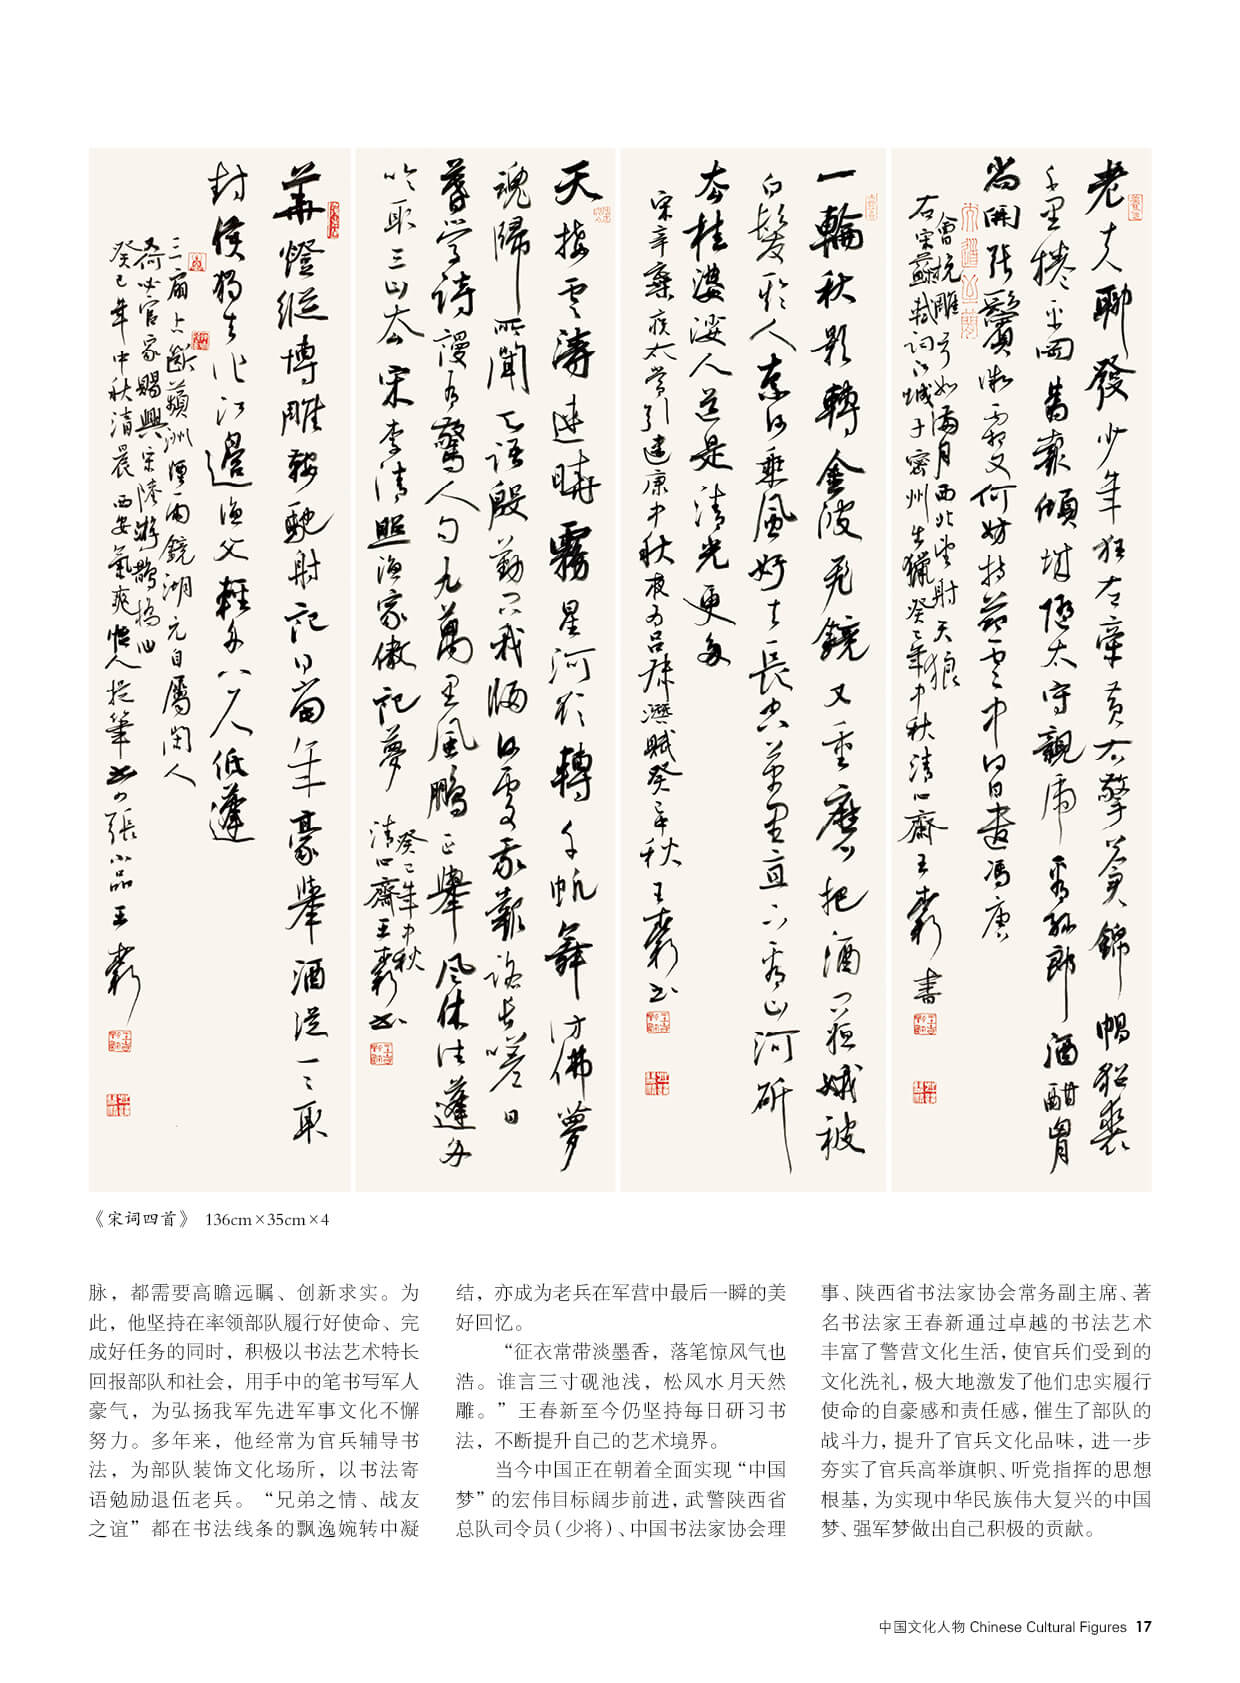 老夫聊發少年狂左牽黃右擎蒼錦帽貂裘
千里捲平岡為報傾城隨太守親虎看孫郎酒酣胸
尚開張鬢微霜又何妨持節雲中何日遣馮唐
會挽雕弓如滿月西北望射天狼
右宋蘇軾詞江城子密州出獵癸巳年中秋清心齋王春新書
一輪秋影轉金波飛鏡又重磨把酒問姮娥被
白髮欺人奈何乘風好去長空萬里直下看山河斫
去桂婆娑人道是清光更多
宋辛棄疾太常引建康中秋夜為呂叔潛賦癸巳年秋王春新書
天接雲濤連曉霧星河欲轉千帆舞仿佛夢
魂歸帝所聞天語殷勤問我歸何處我報路長嗟日
暮學詩謾有驚人句九萬里風鵬正舉風休住蓬舟
吹取三山去宋李清照漁家傲記夢
癸巳年中秋
清心齋王春新書
華燈縱博雕鞍馳射誰記當年豪舉酒徒一一取
封侯獨去作江邊漁父輕舟八尺低篷
三扇占斷蘋洲煙雨鏡湖元自屬閑人
何必官家賜與宋陸游鵲橋仙
癸巳年中秋清晨西安氣爽怡人提筆書四張小品王春新
《宋词四首》 136cm×35cm×4
脉，都需要高瞻远瞩、创新求实。为
此，他坚持在率领部队履行好使命、完
成好任务的同时，积极以书法艺术特长
回报部队和社会，用手中的笔书写军人
豪气，为弘扬我军先进军事文化不懈
努力。多年来，他经常为官兵辅导书
法，为部队装饰文化场所，以书法寄
语勉励退伍老兵。“兄弟之情、战友
之谊”都在书法线条的飘逸婉转中凝
结，亦成为老兵在军营中最后一瞬的美
好回忆。
“征衣常带淡墨香，落笔惊风气也
浩。谁言三寸砚池浅，松风水月天然
雕。”王春新至今仍坚持每日研习书
法，不断提升自己的艺术境界。
当今中国正在朝着全面实现“中国
梦”的宏伟目标阔步前进，武警陕西省
总队司令员（少将）、中国书法家协会理
事、陕西省书法家协会常务副主席、著
名书法家王春新通过卓越的书法艺术
丰富了警营文化生活，使官兵们受到的
文化洗礼，极大地激发了他们忠实履行
使命的自豪感和责任感，催生了部队的
战斗力，提升了官兵文化品味，进一步
夯实了官兵高举旗帜、听党指挥的思想
根基，为实现中华民族伟大复兴的中国
梦、强军梦做出自己积极的贡献。
中国文化人物 Chinese Cultural Figures 17